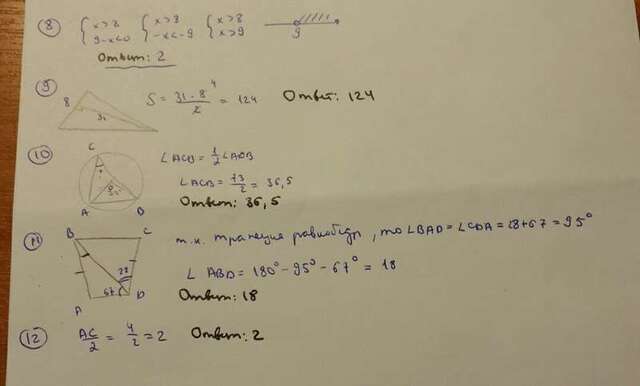 8 { x>8 { x>8 { x>8
9-x<0 -x<-9 x>9 9
Ответ: 2
9 8 31 S = 31·8 4 / 2 = 124 Ответ: 124
10 C ∠ACB = 1/2 ∠AOB
A B ∠ACB = 73/2 = 36,5
Ответ: 36,5
11 B C т.к. трапеция равнобедр, то ∠BAD = ∠CDA = 28+67 = 95°
28 67 D A ∠ABD = 180° - 95° - 67° = 18
Ответ: 18
12 AC/2 = 4/2 = 2 Ответ: 2